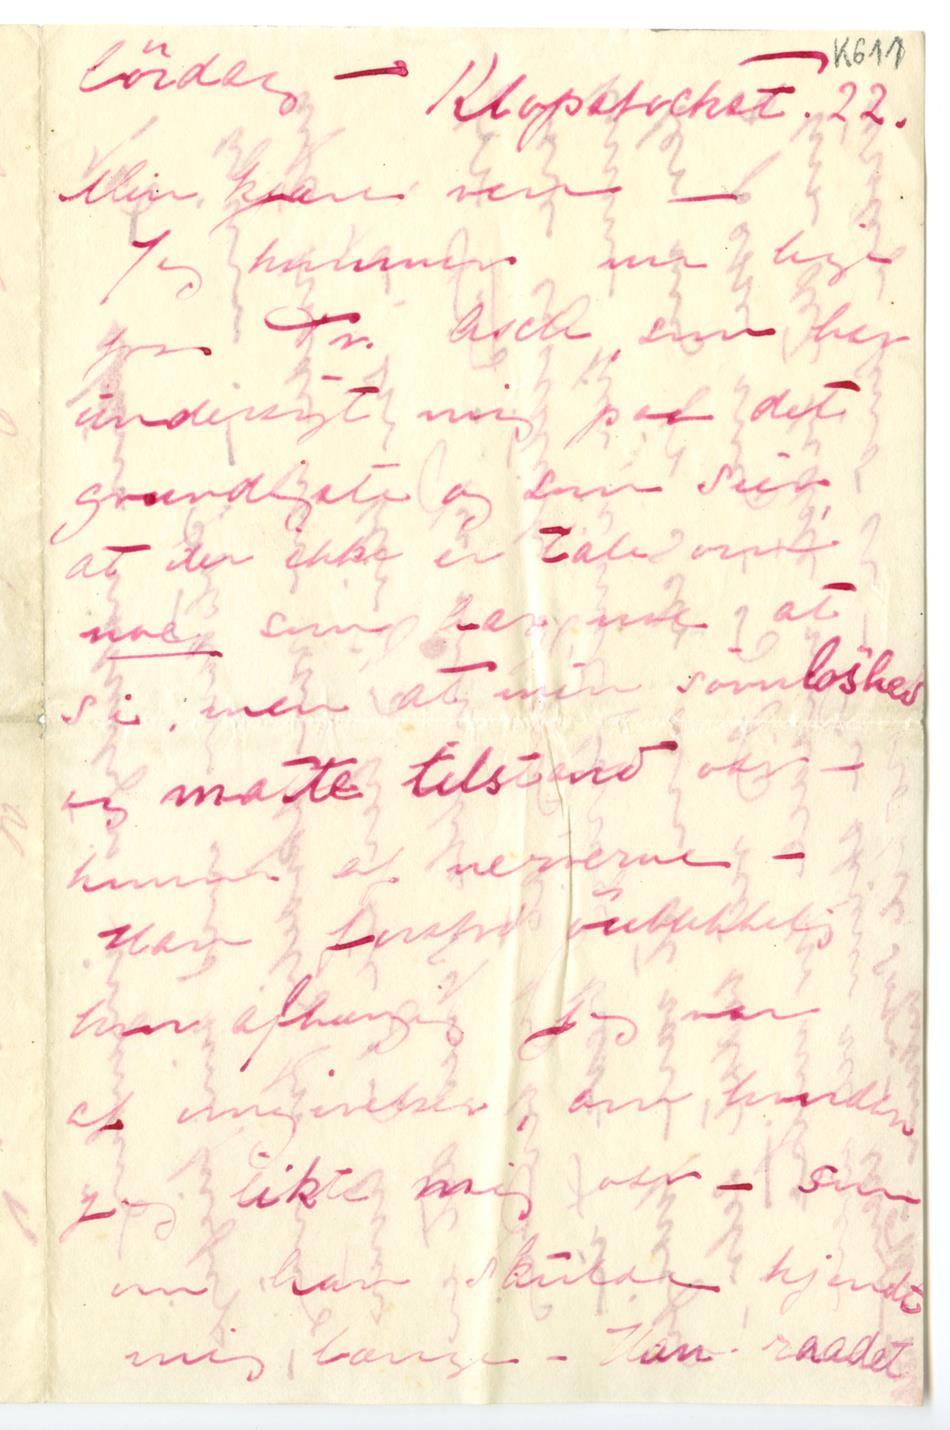 K611
Lördag — Klopstockst. 22.
Min kjære ven —
Jeg kommer nu lige
fra Dr. Asch, som har
undersøgt mig paa det
grundigste og som sier
at der ikke er Tale om
noe som har noe at
si, men at min sövnlöshed
og matte tilstand osv —
kommer af nerverne —
Han forstod öieblikkelig
hvor afhængig jeg var
af omgivelser, om hvordan
jeg likte mig osv — som
om han skulde kjendt
mig længe — Han raadet